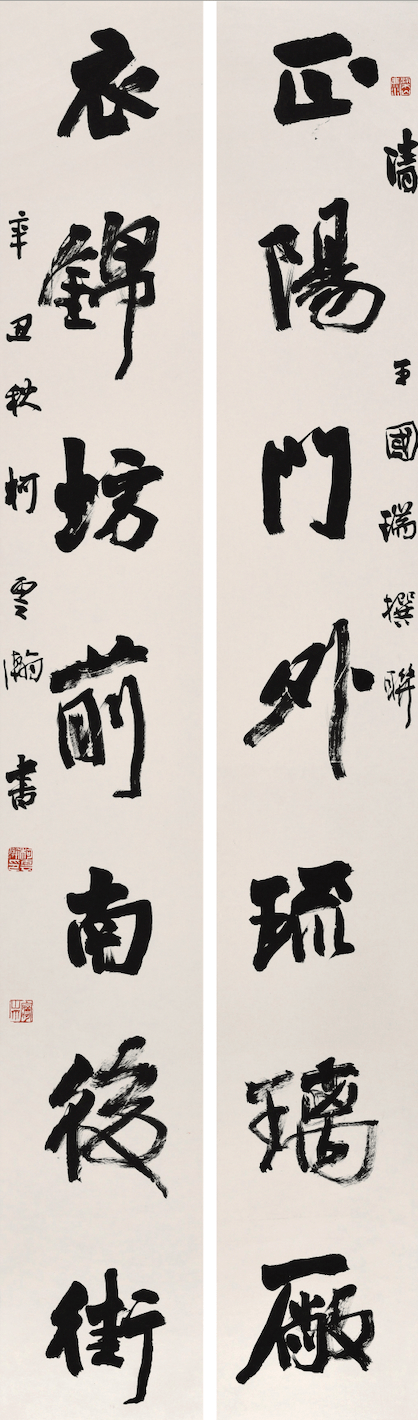 清 王國瑞撰聯
正陽門外琉璃廠
衣錦坊前南後街
辛丑秋柯雲瀚書